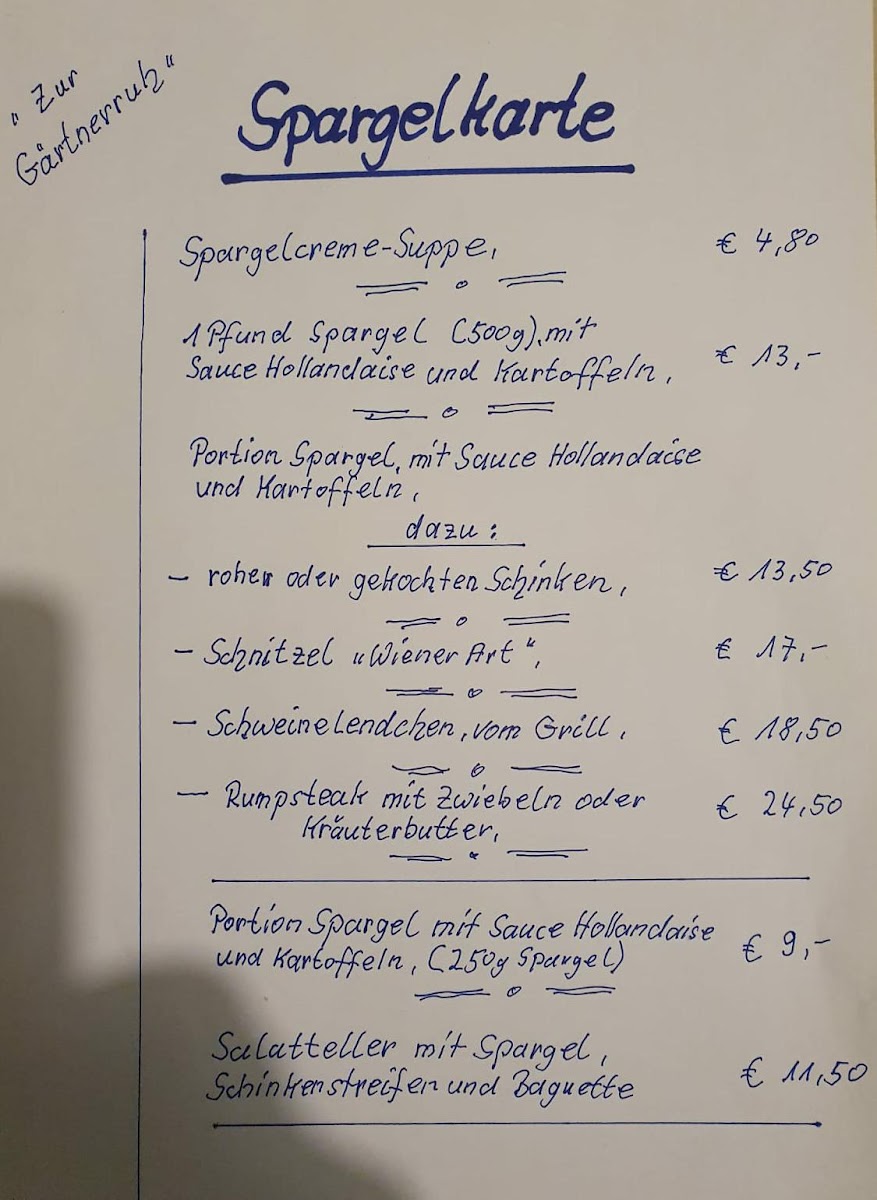 „Zur
Gärtnerruh“
Spargelkarte
Spargelcreme-Suppe, € 4,80
1 Pfund Spargel (500g), mit
Sauce Hollandaise und Kartoffeln, € 13,-
Portion Spargel, mit Sauce Hollandaise
und Kartoffeln,
dazu:
- rohen oder gekochten Schinken, € 13,50
- Schnitzel „Wiener Art“, € 17,-
- Schweinelendchen, vom Grill, € 18,50
- Rumpsteak mit Zwiebeln oder € 24,50
Kräuterbutter,
Portion Spargel mit Sauce Hollandaise
und Kartoffeln, (250g Spargel) € 9,-
Salatteller mit Spargel,
Schinkenstreifen und Baguette € 11,50